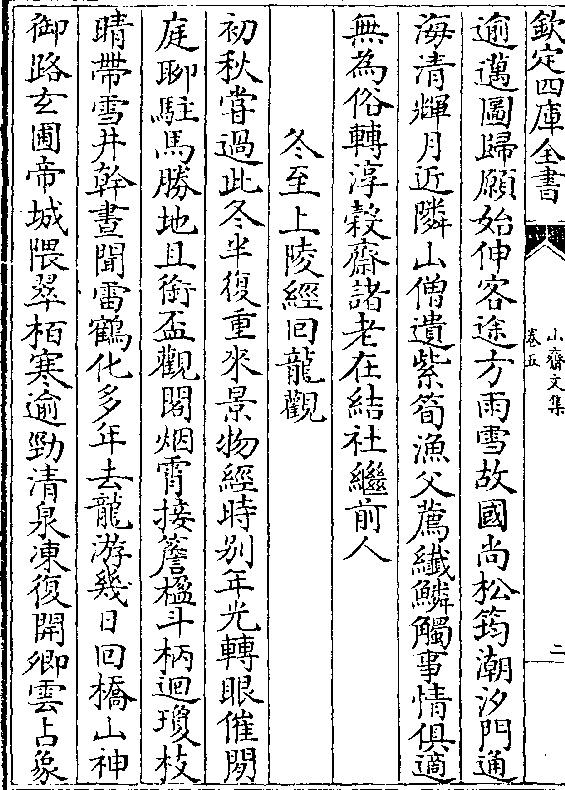 欽定四庫全書
山齋文集
卷五
二
逾邁圖歸願始伸客途方雨雪故國尚松筠潮汐門通
海清輝月近隣山僧遺紫筍漁父薦纖鱗觸事情俱適
無為俗轉淳穀齋諸老在結社繼前人
冬至上陵經回龍觀
初秋嘗過此冬半復重來景物經時别年光轉眼催閒
庭聊駐馬勝地且銜盃觀閣烟霄接簷楹斗柄迴瓊枝
晴帶雪井幹晝聞雷鶴化多年去龍游幾日回橋山神
御路玄圃帝城隈翠栢寒逾勁清泉凍復開卿雲占象